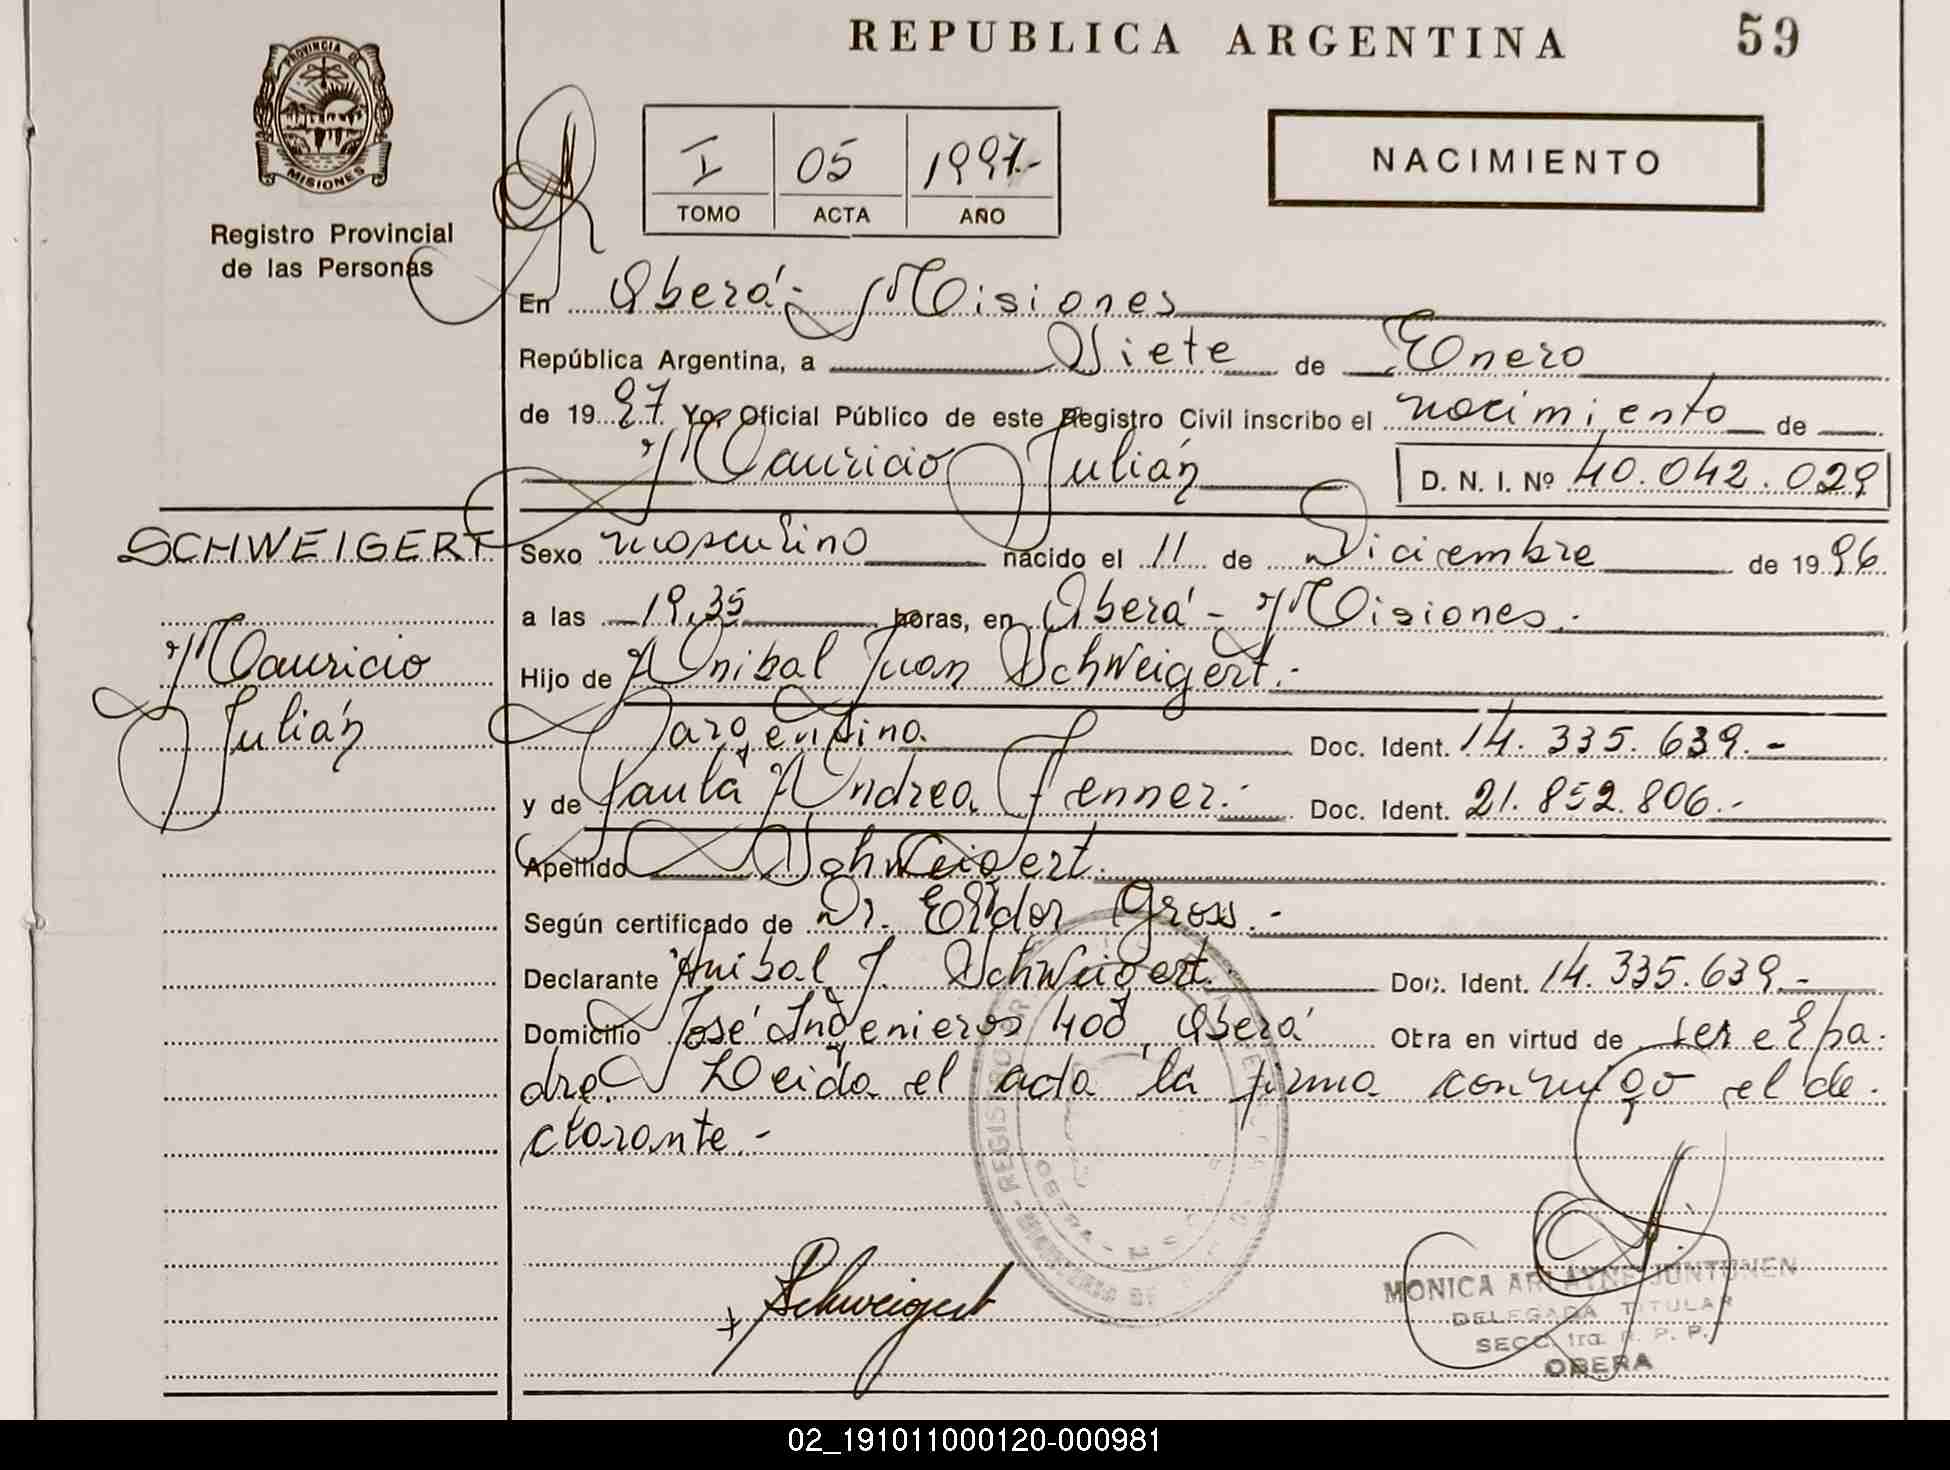 REPUBLICA ARGENTINA 59
PROVINCIA DE
MISIONES
Registro Provincial
de las Personas
I 05 1997.-
TOMO ACTA AÑO
NACIMIENTO
En Oberá - Misiones
República Argentina, a Siete de Enero
de 1997 Yo, Oficial Público de este Registro Civil inscribo el nacimiento de
Mauricio Julián D. N. I. Nº 40.042.029
SCHWEIGERT
Mauricio
Julián
Sexo masculino nacido el 11 de Diciembre de 1996
a las 19,35 horas, en Oberá - Misiones.-
Hijo de Anibal Juan Schweigert.-
argentino. Doc. Ident. 14.335.639.-
y de Paula Andrea Jenner.- Doc. Ident. 21.852.806.-
Apellido Schweigert.
Según certificado de Dr. Gross.-
Declarante Anibal J. Schweigert. Doc. Ident. 14.335.639.-
Domicilio José Ingenieros 400, Oberá Obra en virtud de ser el pa-
dre. Leida el acta la firma conmigo el de-
clarante.-
Schweigert
MONICA JUNTUNEN
DELEGADA TITULAR
SECC. 1ra. R. P. P.
OBERA
02_191011000120-000981